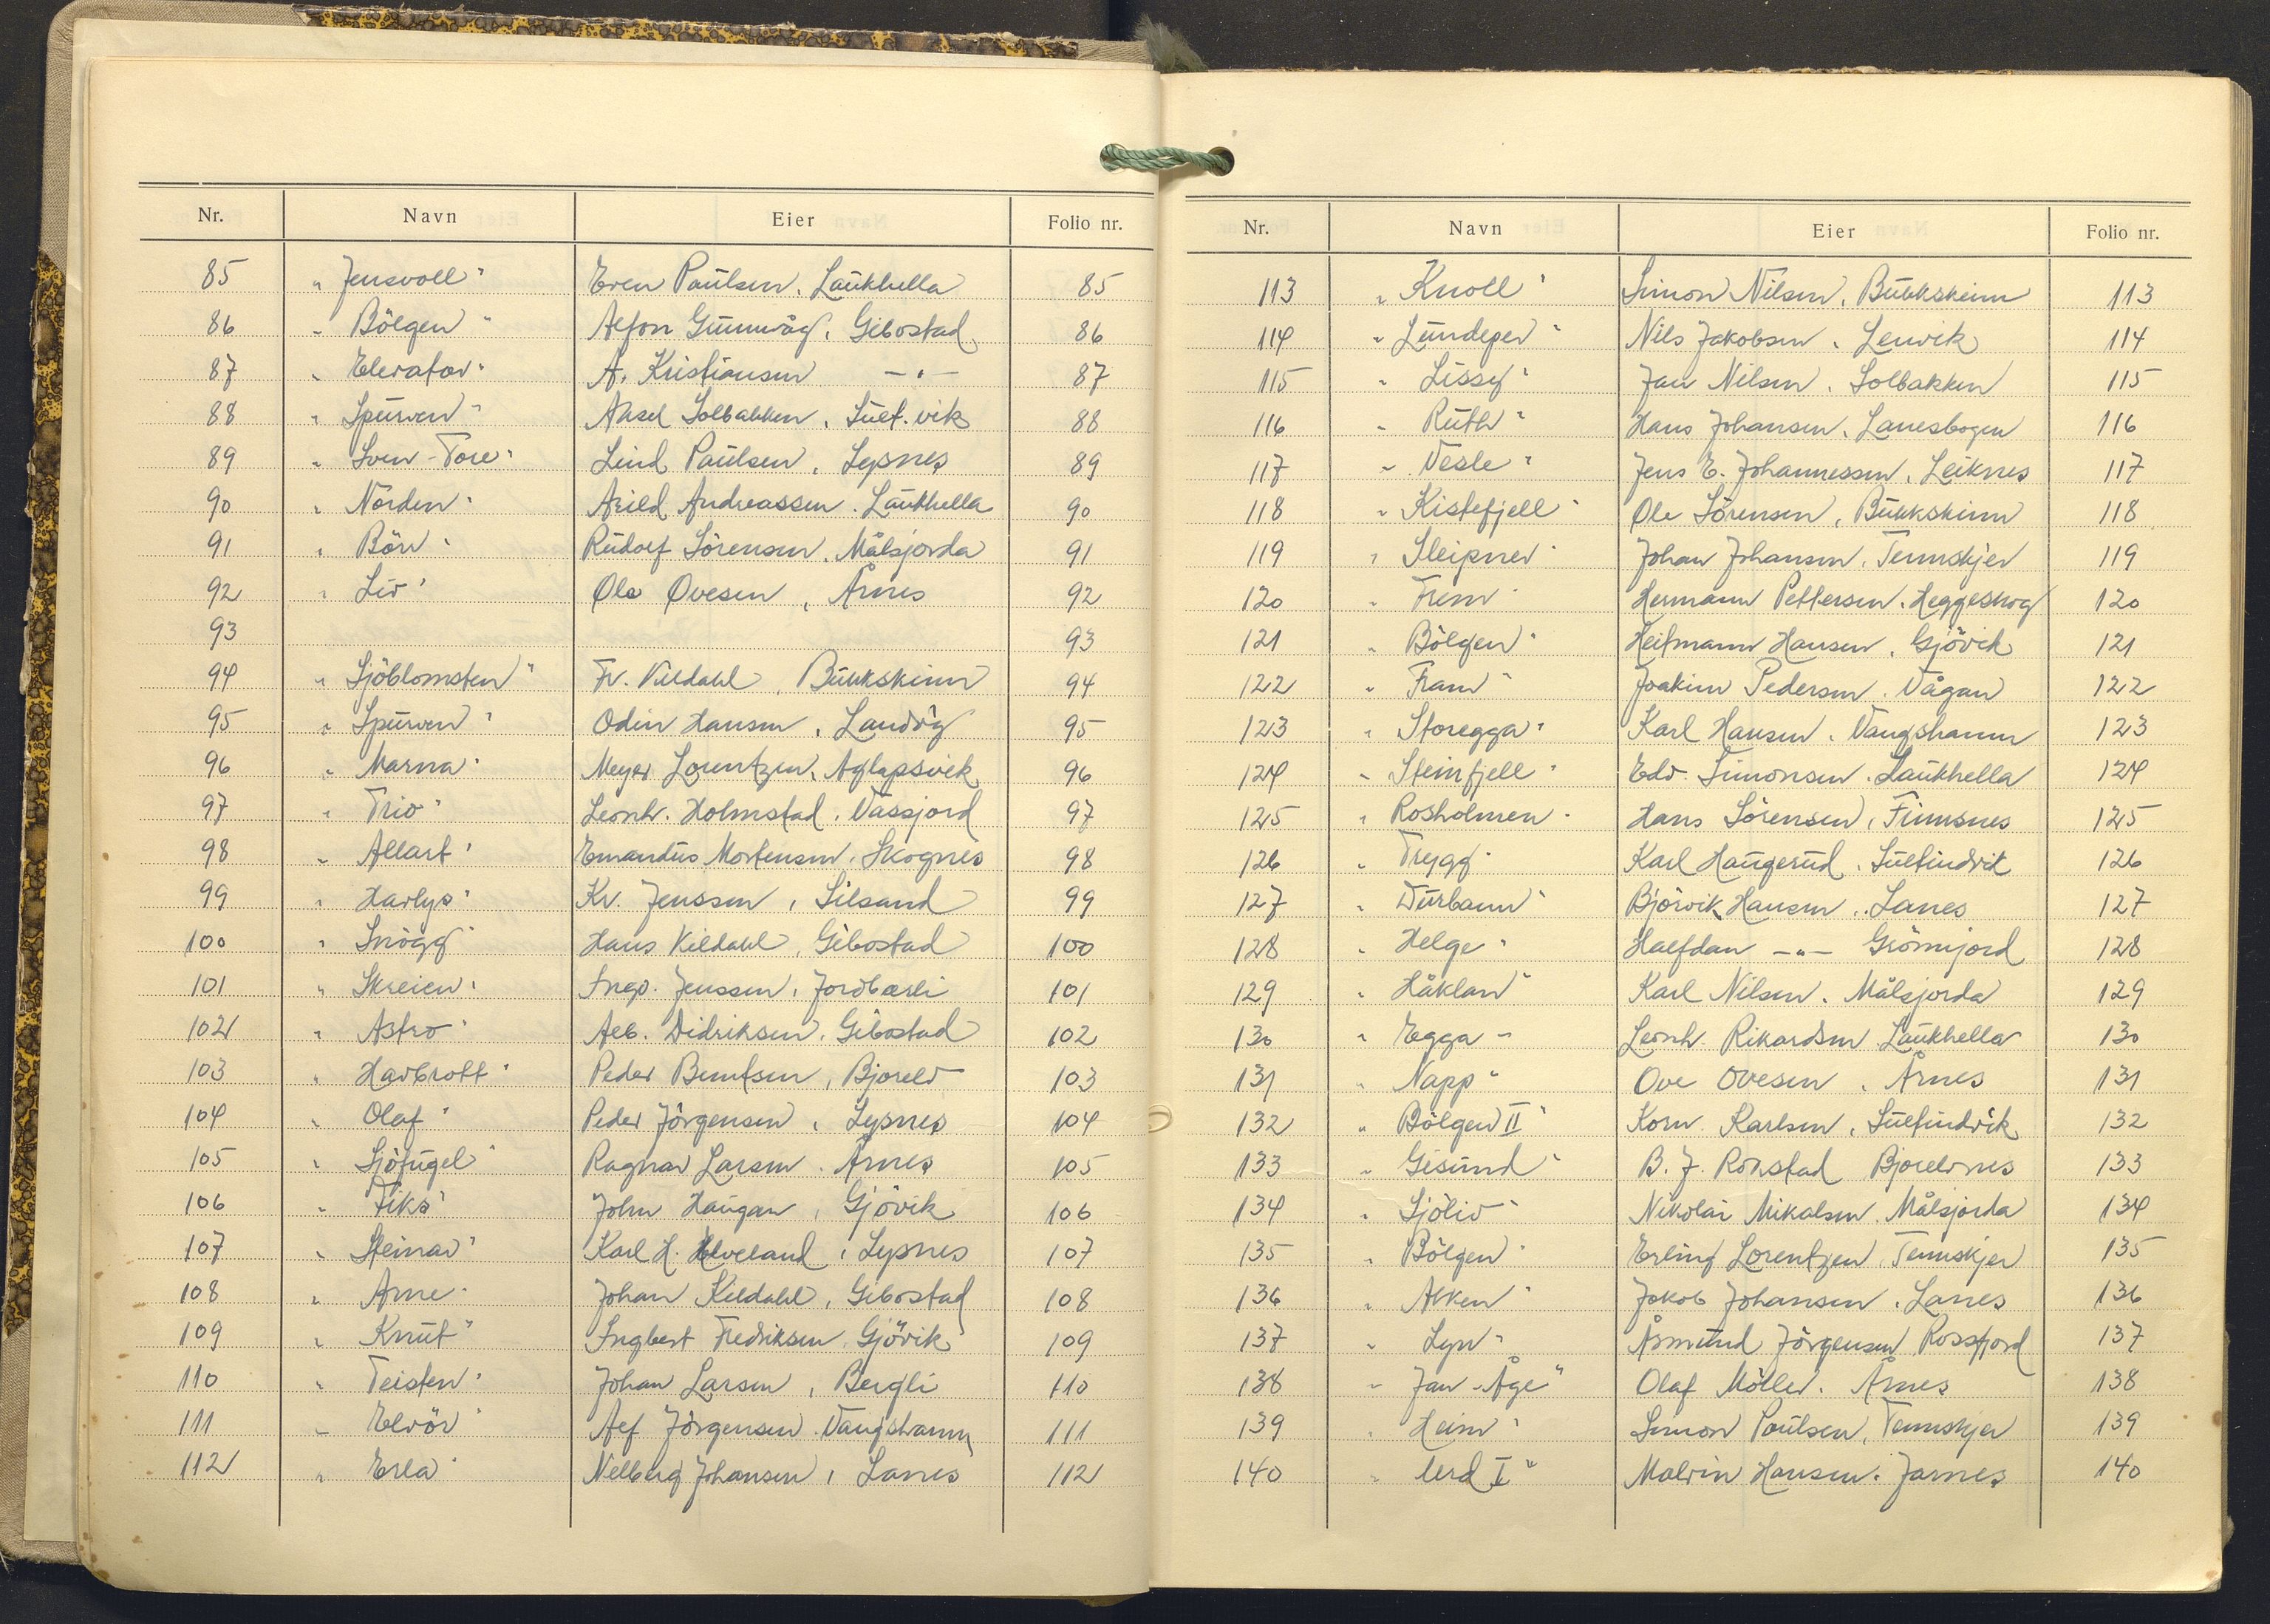 Nr. Navn Eier Folio nr.
85 „Jensvoll" Even Paulsen, Laukhella 85
86 „Bölgen" Alfon Gunnvåg, Gibostad 86
87 „Elevator" A. Kristiansen —„— 87
88 „Spurven" Aksel Solbakken, Sult.vik 88
89 „Sven-Tore" Lind Paulsen, Lysnes 89
90 „Norden" Arild Andreassen, Laukhella 90
91 „Börv" Rudolf Sörensen, Målsjorda 91
92 „Liv" Ole Ovesen, Årnes 92
93 93
94 „Sjöblomsten" Fr. Kildahl, Bukkskinn 94
95 „Spurven" Odin Hansen, Landvåg 95
96 „Marna" Meyer Lorentzen, Aglapsvik 96
97 „Trio" Leonh. Holmstad, Vassjord 97
98 „Allart" Emandus Mortensen, Skognes 98
99 „Havlys" Kr. Jenssen, Silsand 99
100 „Snögg" Hans Kildahl, Gibostad 100
101 „Skreien" Ingv. Jenssen, Jordbærli 101
102 „Astro" Alb. Didriksen, Gibostad 102
103 „Havbrott" Peder Berntsen, Bjorelv 103
104 „Olaf" Peder Jörgensen, Lysnes 104
105 „Sjöfugel" Ragnar Larsen, Årnes 105
106 „Fiks" John Haugan, Gjövik 106
107 „Steinar" Karl H. Elveland, Lysnes 107
108 „Arne" Johan Kildahl, Gibostad 108
109 „Knut" Ingbert Fredriksen, Gjövik 109
110 „Teisten" Johan Larsen, Bergli 110
111 „Elvör" Alf Jörgensen, Vangshamn 111
112 „Erla" Nelberg Johansen, Lanes 112
Nr. Navn Eier Folio nr.
113 „Knoll" Simon Nilsen, Bukkskinn 113
114 „Lundeper" Nils Jakobsen, Lenvik 114
115 „Lissy" Jan Nilsen, Solbakken 115
116 „Ruth" Hans Johansen, Lanesbogen 116
117 „Vesle" Jens E. Johannessen, Leiknes 117
118 „Kistefjell" Ole Sörensen, Bukkskinn 118
119 „Sleipner" Johan Johansen, Tennskjer 119
120 „Frem" Hermann Pettersen, Heggeskog 120
121 „Bölgen" Heitmann Hansen, Gjövik 121
122 „Fram" Joakim Pedersen, Vågan 122
123 „Storegga" Karl Hansen, Vangshamn 123
124 „Steinfjell" Edv. Simonsen, Laukhella 124
125 „Rosholmen" Hans Sörensen, Finnsnes 125
126 „Trygg" Karl Haugerud, Sultindvik 126
127 „Durbann" Björvik Hansen, Lanes 127
128 „Helge" Halfdan —„— Grömijord 128
129 „Håklan" Karl Nilsen, Målsjorda 129
130 „Egga" Leonh Rikardsen Laukhella 130
131 „Napp" Ove Ovesen, Årnes 131
132 „Bölgen II" Korn. Karlsen, Sultindvik 132
133 „Gisund" B. J. Ronstad Bjorelvnes 133
134 „Sjöliv" Nikolai Mikalsen Målsjorda 134
135 „Bölgen" Erling Lorentzen, Tennskjer 135
136 „Alken" Jakob Johansen, Lanes 136
137 „Lyn" Åsmund Jörgensen Rossfjord 137
138 „Jan-Åge" Olaf Möller, Årnes 138
139 „Heim" Simon Paulsen, Tennskjer 139
140 „Urd I" Malvin Hansen, Jarnes 140